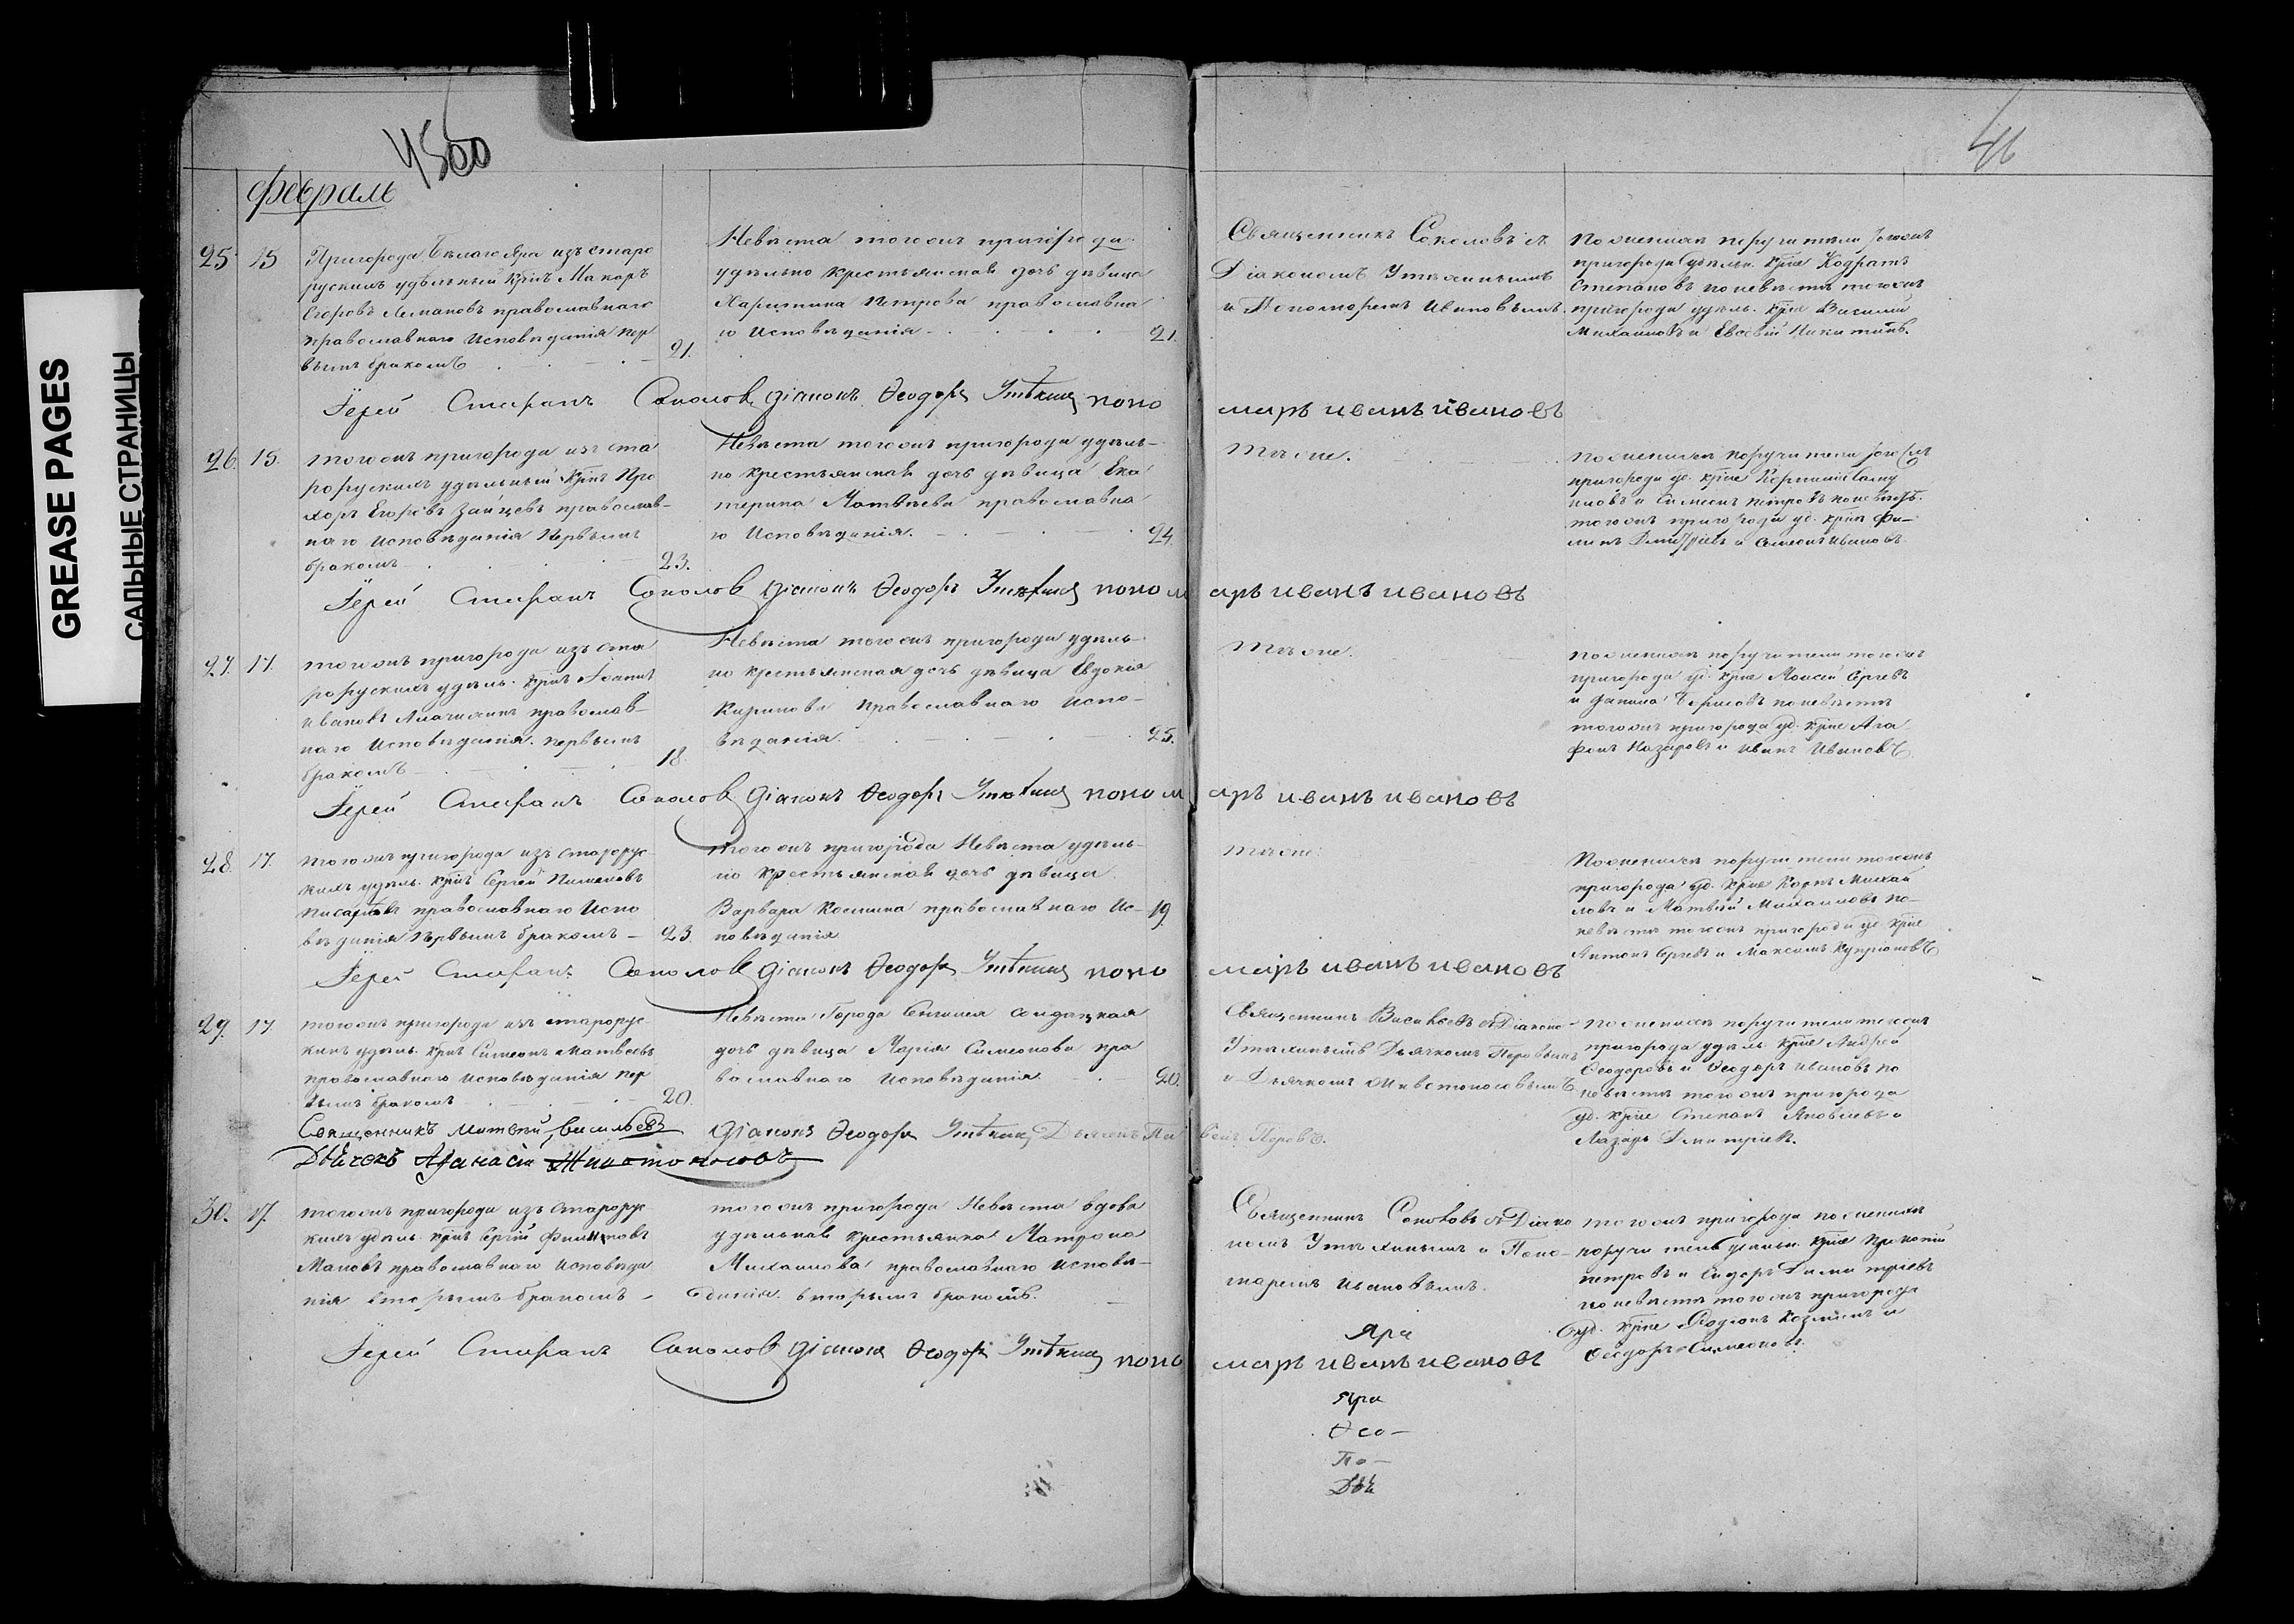 GREASE PAGES
САЛЬНЫЕ СТРАНИЦЫ
46
Февраль
25 15 Пригорода Белаго Яра изъ старо
рускихъ удѣльный крнъ Макаръ
Егоровъ православнаго
православнаго исповѣданія пер
вымъ бракомъ 21.
Невѣста тогожъ пригорода
удѣльно крестьянская дочь дѣвица
Харитина Петрова православна
го исповѣданія 21.
Священникъ Соколовъ съ
Діакономъ Утѣхинымъ
и Пономаремъ Ивановымъ.
По женихѣ поручители тогожъ
пригорода удѣльн. крне Кодратъ
Степановъ по невѣстѣ тогожъ
пригорода удѣль. крне Василий
Михаиловъ и Евсевій Никитинъ.
Іерей Стефанъ Соколовъ Діаконъ Ѳеодоръ Утѣхинъ пономаръ иванъ ивановъ
26. 15. тогожъ пригорода изъ ста
рорускихъ удѣльный крнъ Про
хоръ Егоровъ Зайцевъ православ-
наго исповѣданія первымъ
бракомъ 23.
Невѣста тогожъ пригорода удѣль-
но крестьянская дочь дѣвица Ека
терина Матвѣева православна
го исповѣданія. 24.
Тѣ же.
по женихѣ поручители тогожъ
пригорода уд. крне
и Симеонъ Петровъ по невѣстѣ
тогожъ пригорода уд. крне Фи-
липъ Дмитріевъ и Симеонъ Ивановъ.
Іерей Стефанъ Соколовъ Діаконъ Ѳеодоръ Утѣхинъ пономаръ иванъ ивановъ
27. 17. тогожъ пригорода изъ ста
рорускихъ удѣль. крнъ Іоаннъ
Ивановъ православ-
наго исповѣданія первымъ
бракомъ 18.
Невѣста тогожъ пригорода удѣль-
но крестьянская дочь дѣвица Евдокія
Кирилова православнаго испо-
вѣданія. 25.
Тѣ же.
по женихѣ поручители тогожъ
пригорода уд. крне Моисей Сергѣевъ
и Данила Борисовъ по невѣстѣ
тогожъ пригорода уд. крне Ага
фонъ Назаровъ и Иванъ Ивановъ.
Іерей Стефанъ Соколовъ Діаконъ Ѳеодоръ Утѣхинъ пономаръ иванъ ивановъ
28. 17. тогожъ пригорода изъ старорус-
кихъ удѣль. крнъ Сергѣй
православнаго испо
вѣданія первымъ бракомъ 23.
тогожъ пригорода Невѣста удѣль-
но крестьянская дочь дѣвица
Варвара Космина православнаго ис- 19.
повѣданія
Тѣ же.
По женихѣ поручители тогожъ
пригорода уд. крне Карпъ Михаи
ловъ и Матвѣй Михаиловъ по
невѣстѣ тогожъ пригорода уд. крне
Антонъ Сергѣевъ и Максимъ Купріановъ
Іерей Стефанъ Соколовъ Діаконъ Ѳеодоръ Утѣхинъ пономаръ иванъ ивановъ
29. 17. тогожъ пригорода изъ старорус-
кихъ удѣль. крнъ Симеонъ Матвѣевъ
православнаго исповѣданія пер
вымъ бракомъ 20.
Невѣста Города Сенгилея солдатская
дочь дѣвица Марія Симеонова пра
вославнаго исповѣданія 20.
Священникъ Васильевъ съ Діакономъ
Утѣхинымъ Дьячкомъ
и Дьячкомъ Животоносовымъ.
по женихѣ поручители тогожъ
пригорода удѣль. крне Андрей
Ѳеодоровъ и Ѳеодоръ Ивановъ по
невѣстѣ тогожъ пригорода
уд. крне Степанъ Яковлевъ и
Лазарь Дмитріевъ.
Священникъ Матвѣй Васильевъ Діаконъ Ѳеодоръ Утѣхинъ Дьячекъ
Дьячекъ Афанасій Животоносовъ
30. 17. тогожъ пригорода изъ старорус
кихъ удѣль. крнъ Сергій Филиповъ
православнаго исповѣда
нія вторымъ бракомъ
тогожъ пригорода Невѣста вдова
удѣльная крестьянка Матрона
Михаилова православнаго исповѣ-
данія вторымъ бракомъ.
Священникъ Соколовъ съ Діако
номъ Утѣхинымъ и Поно-
маремъ Ивановымъ.
тогожъ пригорода по женихѣ
поручители удѣльн. крне Прокопій
Петровъ и Сидоръ Димитріевъ
по невѣстѣ тогожъ пригорода
уд. крне Родіонъ Козминъ и
Ѳеодоръ Симеоновъ.
Яра
Іерей Стефанъ Соколовъ Діаконъ Ѳеодоръ Утѣхинъ пономаръ иванъ ивановъ
Яра
Ѳео-
По-
Дья